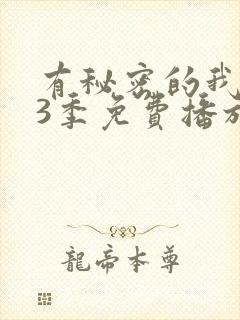 有秘密的我
3季免费播放
龍帝本尊